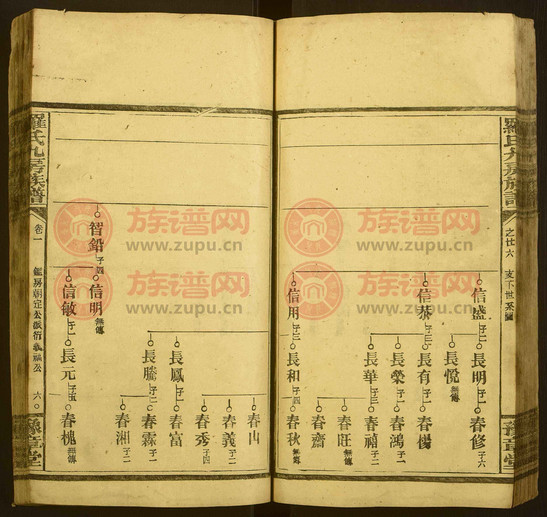 羅氏九房族譜
之廿六
支下世系圖
豫章堂
信盛 子二
長明 子一
春修 子六
長悅 無傳
信恭 子三
長有 子一
春優
長榮 子一
春鴻 子二
長華 子三
春禎 子二
春旺 無傳
春齋
信用 子三
長和 子四
春秋 無傳
春山
春義 子二
春秀 子四
長鳳 子一
春富
長騰 子二
春霖 子二
春湘 子二
智鉛 子四
信明 無傳
信敏 子一
長元 子五
春槐 無傳
羅氏九房族譜
卷一
六〇
豫章堂
族谱网
www.zupu.cn
族谱网
www.zupu.cn
族谱网
www.zupu.cn
族谱网
www.zupu.cn